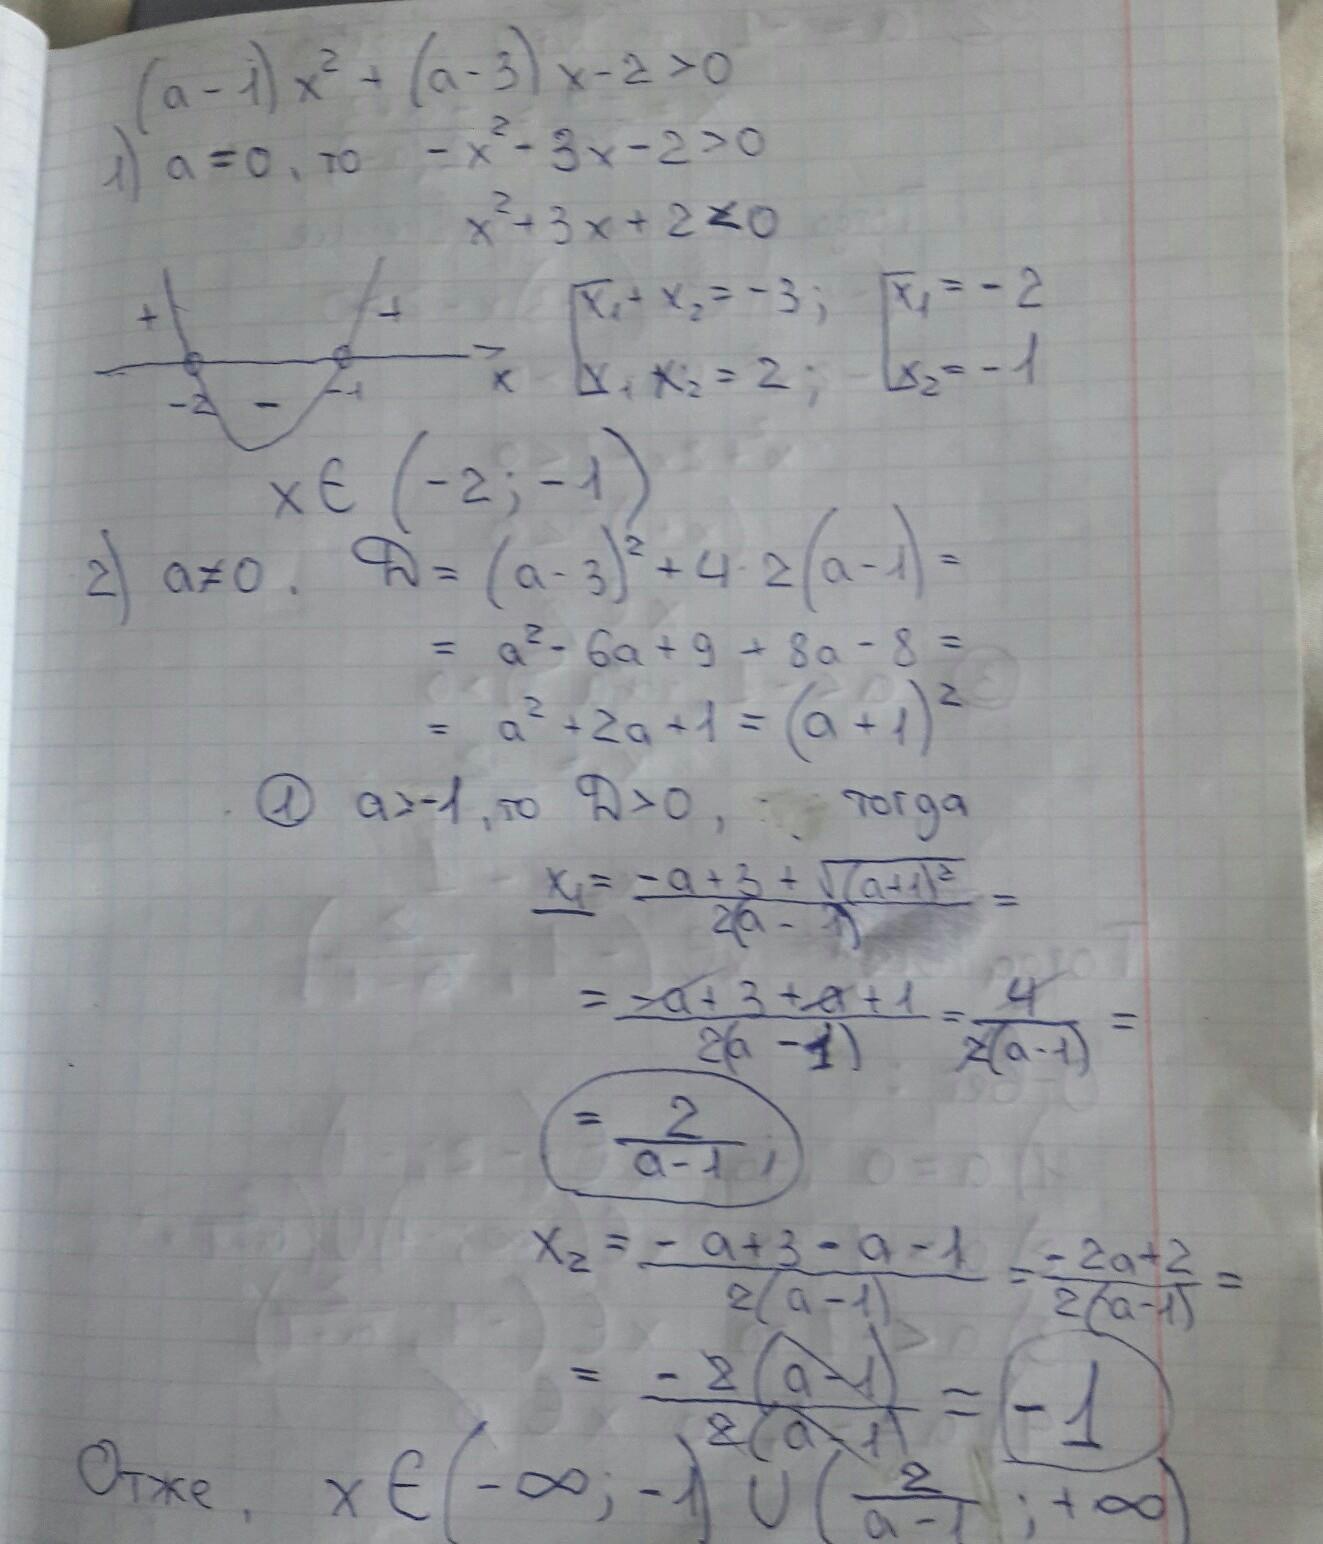 (a-1)x² + (a-3)x-2>0
1) a=0, то -x²-3x-2>0
x²+3x+2<0
+ + [x₁+x₂=-3; [x₁=-2
-2 - -1 x x₁x₂=2; x₂=-1
x∈(-2;-1)
2) a≠0. D=(a-3)²+4·2(a-1)=
= a²-6a+9+8a-8=
= a²+2a+1=(a+1)²
① a>-1, то D>0, тогда
x₁= (-a+3+√(a+1)²)/(2(a-1)) =
= (-a+3+a+1)/(2(a-1)) = 4/(2(a-1)) =
= 2/(a-1);
x₂= (-a+3-a-1)/(2(a-1)) = (-2a+2)/(2(a-1)) =
= (-2(a-1))/(2(a-1)) = -1
Отже, x∈(-∞;-1)∪(2/(a-1);+∞)